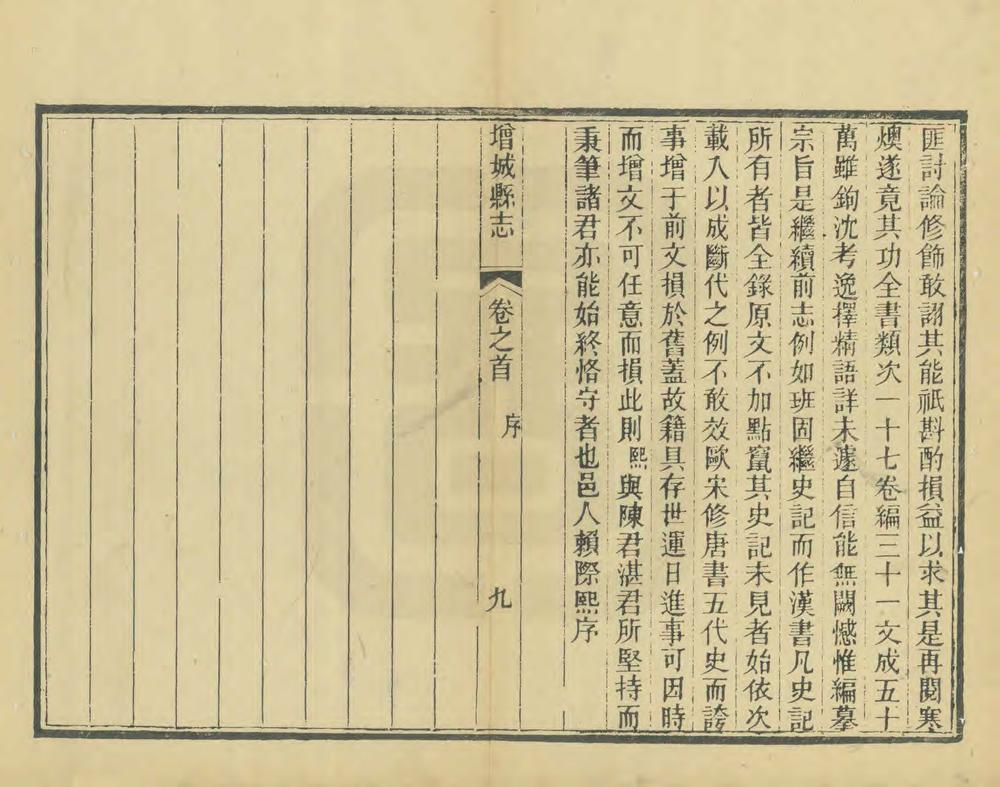 匪討論修飾敢詡其能祇斟酌損益以求其是再閱寒
燠遂竟其功全書類次一十七卷編三十一文成五十
萬雖鉤沈考逸擇精語詳未遽自信能無闕憾惟編摹
宗旨是繼續前志例如班固繼史記而作漢書凡史記
所有者皆全錄原文不加點竄其史記未見者始依次
載入以成斷代之例不敢效歐宋修唐書五代史而誇
事增于前文損於舊蓋故籍具存世運日進事可因時
而增文不可任意而損此則熙與陳君湛君所堅持而
秉筆諸君亦能始終恪守者也邑人賴際熙序
增城縣志 卷之首 序 九